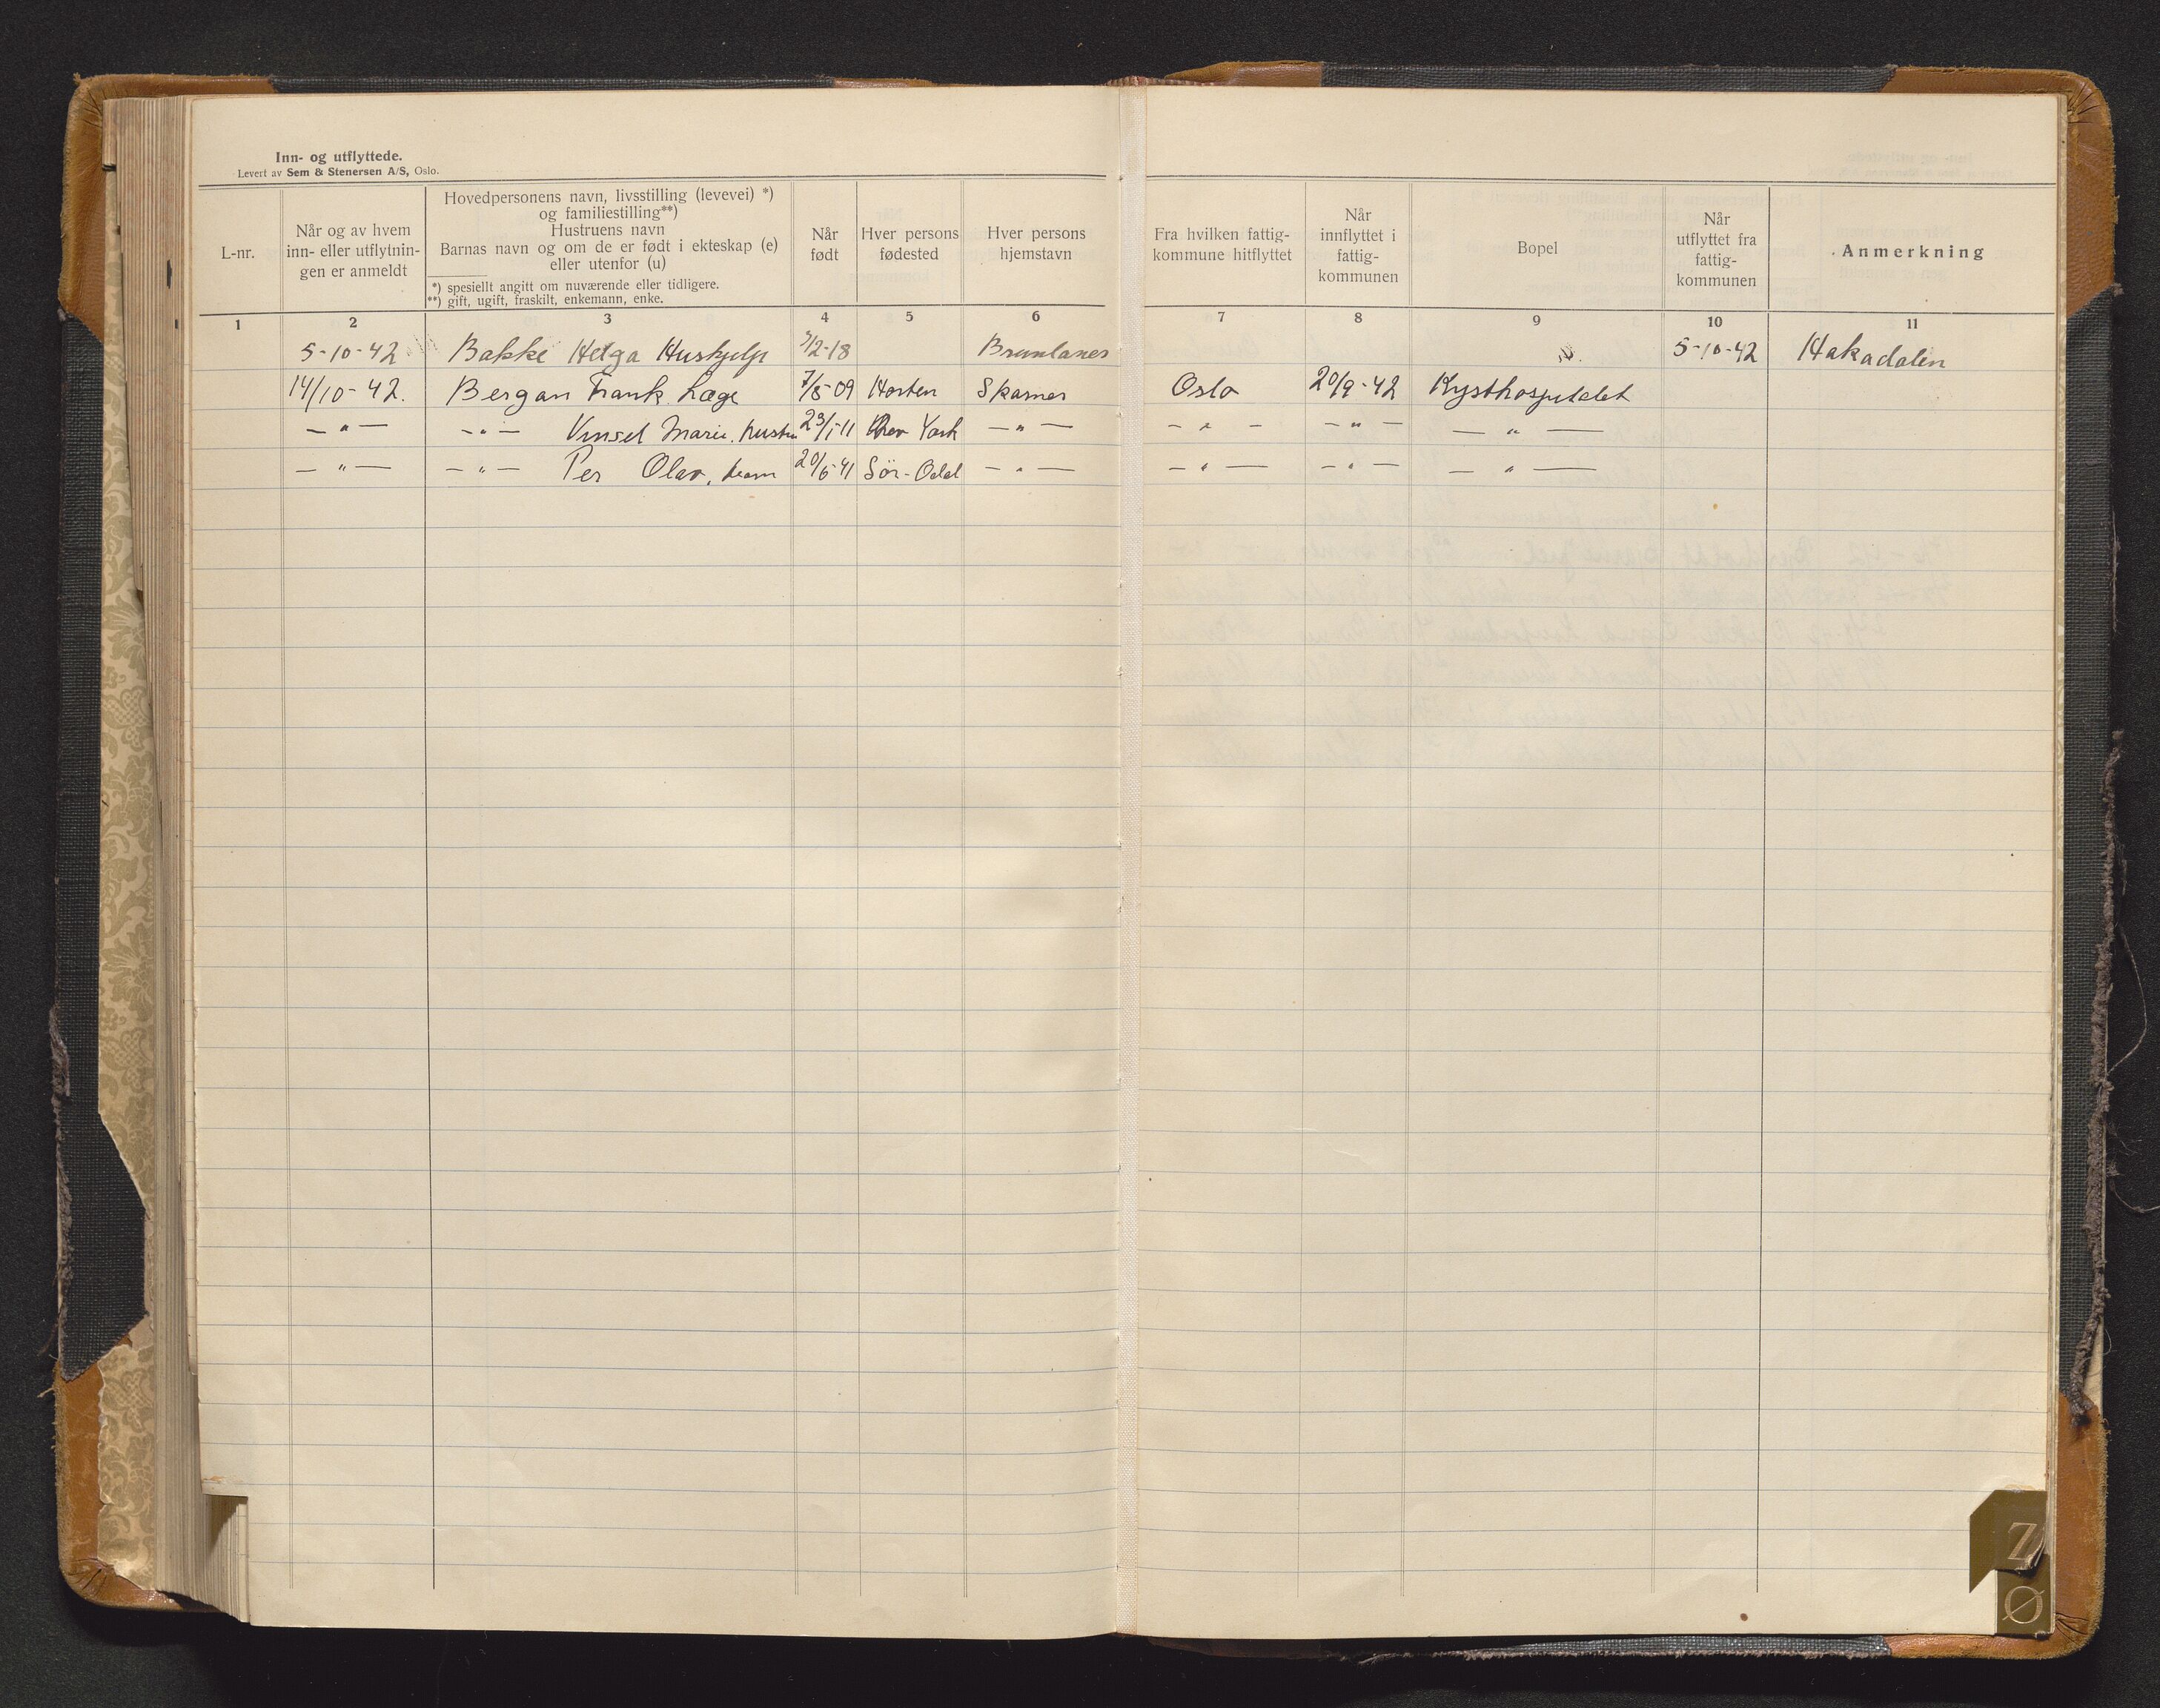 Inn- og utflyttede.
Levert av Sem & Stenersen A/S, Oslo.
L-nr.
Når og av hvem
inn- eller utflytnin-
gen er anmeldt
Hovedpersonens navn, livsstilling (levevei) *)
og familiestilling**)
Hustruens navn
Barnas navn og om de er født i ekteskap (e)
eller utenfor (u)
*) spesielt angitt om nuværende eller tidligere.
**) gift, ugift, fraskilt, enkemann, enke.
Når
født
Hver persons
fødested
Hver persons
hjemstavn
Fra hvilken fattig-
kommune hitflyttet
Når
innflyttet i
fattig-
kommunen
Bopel
Når
utflyttet fra
fattig-
kommunen
Anmerkning
1 2 3 4 5 6 7 8 9 10 11
5-10-42 Bakke Helga Hushjelp 3/2-18 Brunlanes 5-10-42 Hakadalen
14/10-42. Bergan Frank. Læge 7/5-09 Horten Skarnes Oslo 20/9-42 Kysthospitalet
-"- -"- Marie. hustru 23/1-11 New York -"- -"- -"- -"-
-"- -"- Per Olav, barn 20/6-41 Sör-Odal -"- -"- -"- -"-
Z
Ø